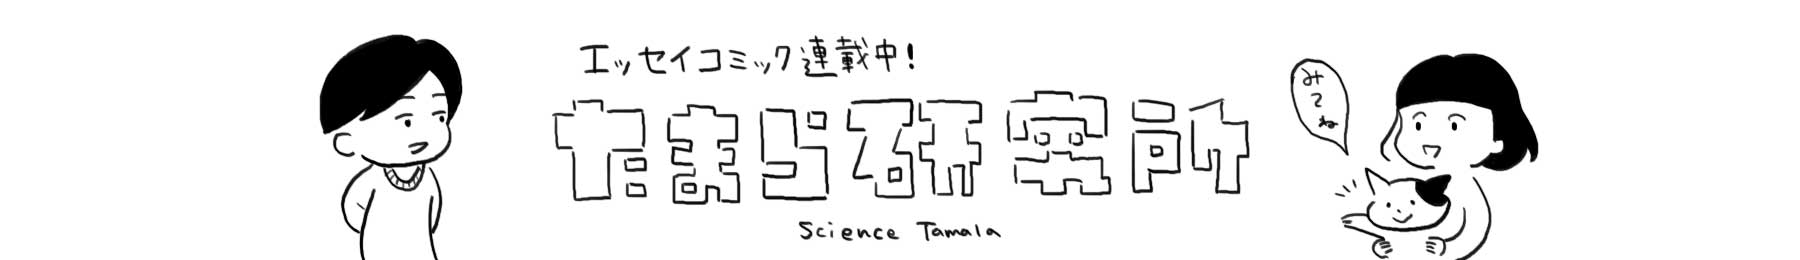 エッセイコミック連載中!
たまら研究所
Science Tamala
みてね